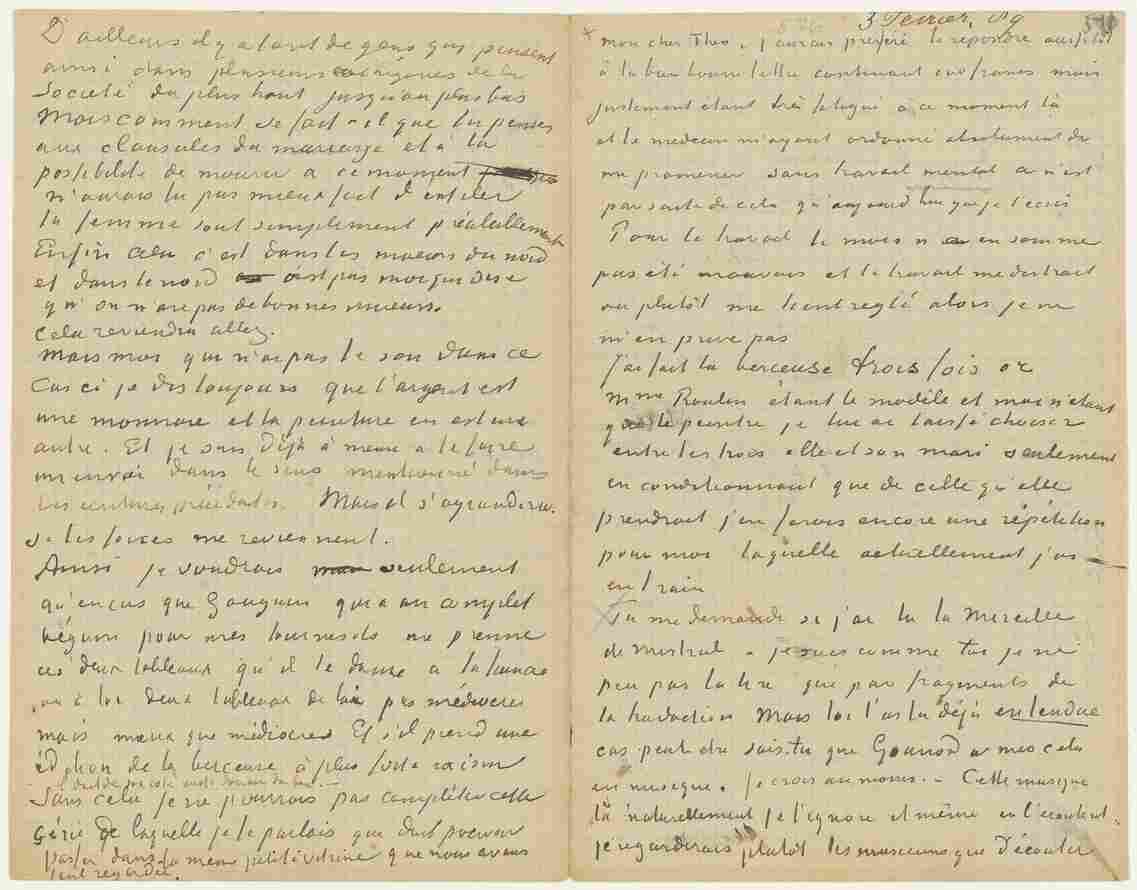 D'ailleurs il y a tant de gens qui pensent
ainsi dans plusieurs categories de la
Société du plus haut jusqu'au plus bas
Mais comment se fait-il que tu penses
aux clausules du mariage et à la
possibilité de mourir à ce moment
n'aurais tu pas mieux fait d'enfiler
ta femme tout simplement préalablement
Enfin cela c'est dans les moeurs du nord
et dans le nord c'est pas moi qui dise
qu'on n'aie pas de bonnes moeurs.
Cela reviendra allez.
Mais moi qui n'ai pas le sou dans ce
Cas ci je dis toujours que l'argent est
une monnaie et la peinture en est une
autre. Et je suis déjà à meme a te faire
un envoi dans le sens mentionné dans
les lettres précedentes. Mais il s'agrandira.
si les forces me reviennent.
Ainsi je voudrais seulement
qu'en cas que Gauguin qui a un complet
béguin pour mes tournesols me prenne
ces deux tableaux qu'il te donne à ta fiancée
ou à toi deux tableaux de lui pas mediocres
mais mieux que médiocres Et s'il prend une
édition de la berceuse à plus forte raison
il doit de son coté aussi donner du bon. –
Sans cela je ne pourrais pas completer cette
série de laquelle je te parlais que doit pouvoir
passer dans la meme petite vitrine que nous avons
tant regardée.
3 Février, 89
mon cher Theo, j'aurais preferé te repondre aussitot
à ta bien bonne lettre contenant 100 francs mais
justement étant très fatigué à ce moment là
et le medecin m'ayant ordonné absolument de
me promener sans travail mental ce n'est
par suite de cela qu'aujourd'hui que je t'écris
Pour le travail le mois n'a en somme
pas été mauvais et le travail me distrait
ou plutôt me tient reglé alors je ne
m'en prive pas
J'ai fait la berceuse trois fois or
Mme Roulin étant le modèle et moi n'étant
que le peintre je lui ai laissé choisir
entre les trois elle et son mari seulement
en conditionnant que de celle qu'elle
prendrait j'en ferais encore une répétition
pour moi laquelle actuellement j'ai
en train
Tu me demandes si j'ai lu la Mireille
de Mistral – je suis comme toi je ne
peu pas la lire que par fragments de
la traduction Mais toi l'as tu déjà entendue
car peut etre sais-tu que Gounod a mis cela
en musique. je crois au moins. – Cette musique
là naturellement je l'ignore et même en l'écoutant
je regarderais plutôt les musiciens que d'écouter